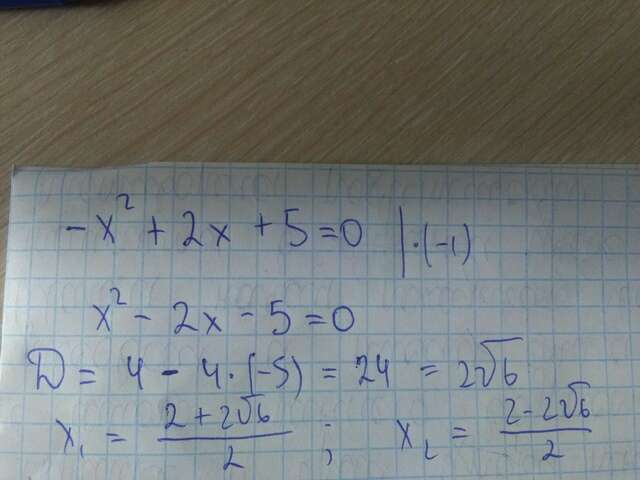 -x² + 2x + 5 = 0 | · (-1)
x² - 2x - 5 = 0
D = 4 - 4 · (-5) = 24 = 2√6
x₁ = (2 + 2√6)/2 ; x₂ = (2 - 2√6)/2